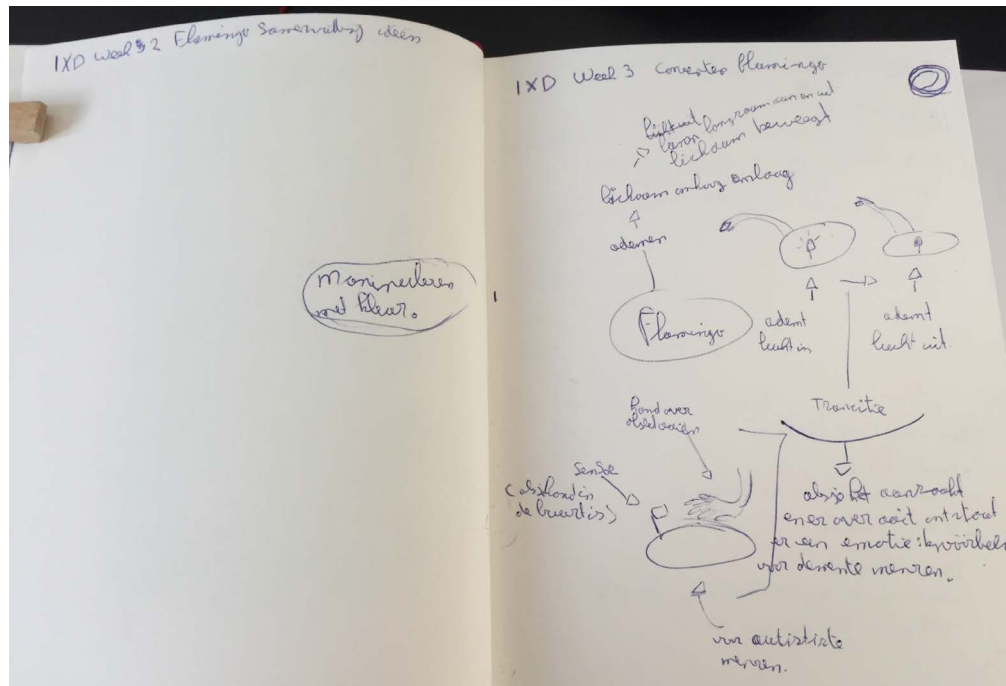 IXD Week 2 Flamingo Samenvatting ideeën
Manipuleren
met kleur.
IXD Week 3 Concepten flamingo
2
langzaam aan en uit
lichaam beweegt
lichaam omhoog omlaag
ademen
Flamingo
ademt
lucht in
ademt
lucht uit
Trancitie
hand over
Sensor
(als hand in
de buurt is)
als je het aanraakt
en er over aait ontstaat
er een emotie: bijvoorbeeld
voor demente mensen.
voor autististe
mensen.